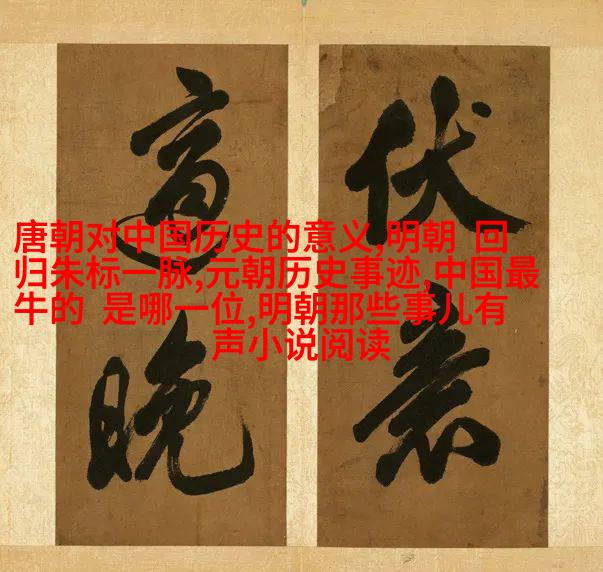 伏
晚
唐朝对中国历史的意义,明朝 回
归朱标一脉,元朝历史事迹,中国最
牛的 是哪一位,明朝那些事儿有
声小说阅读